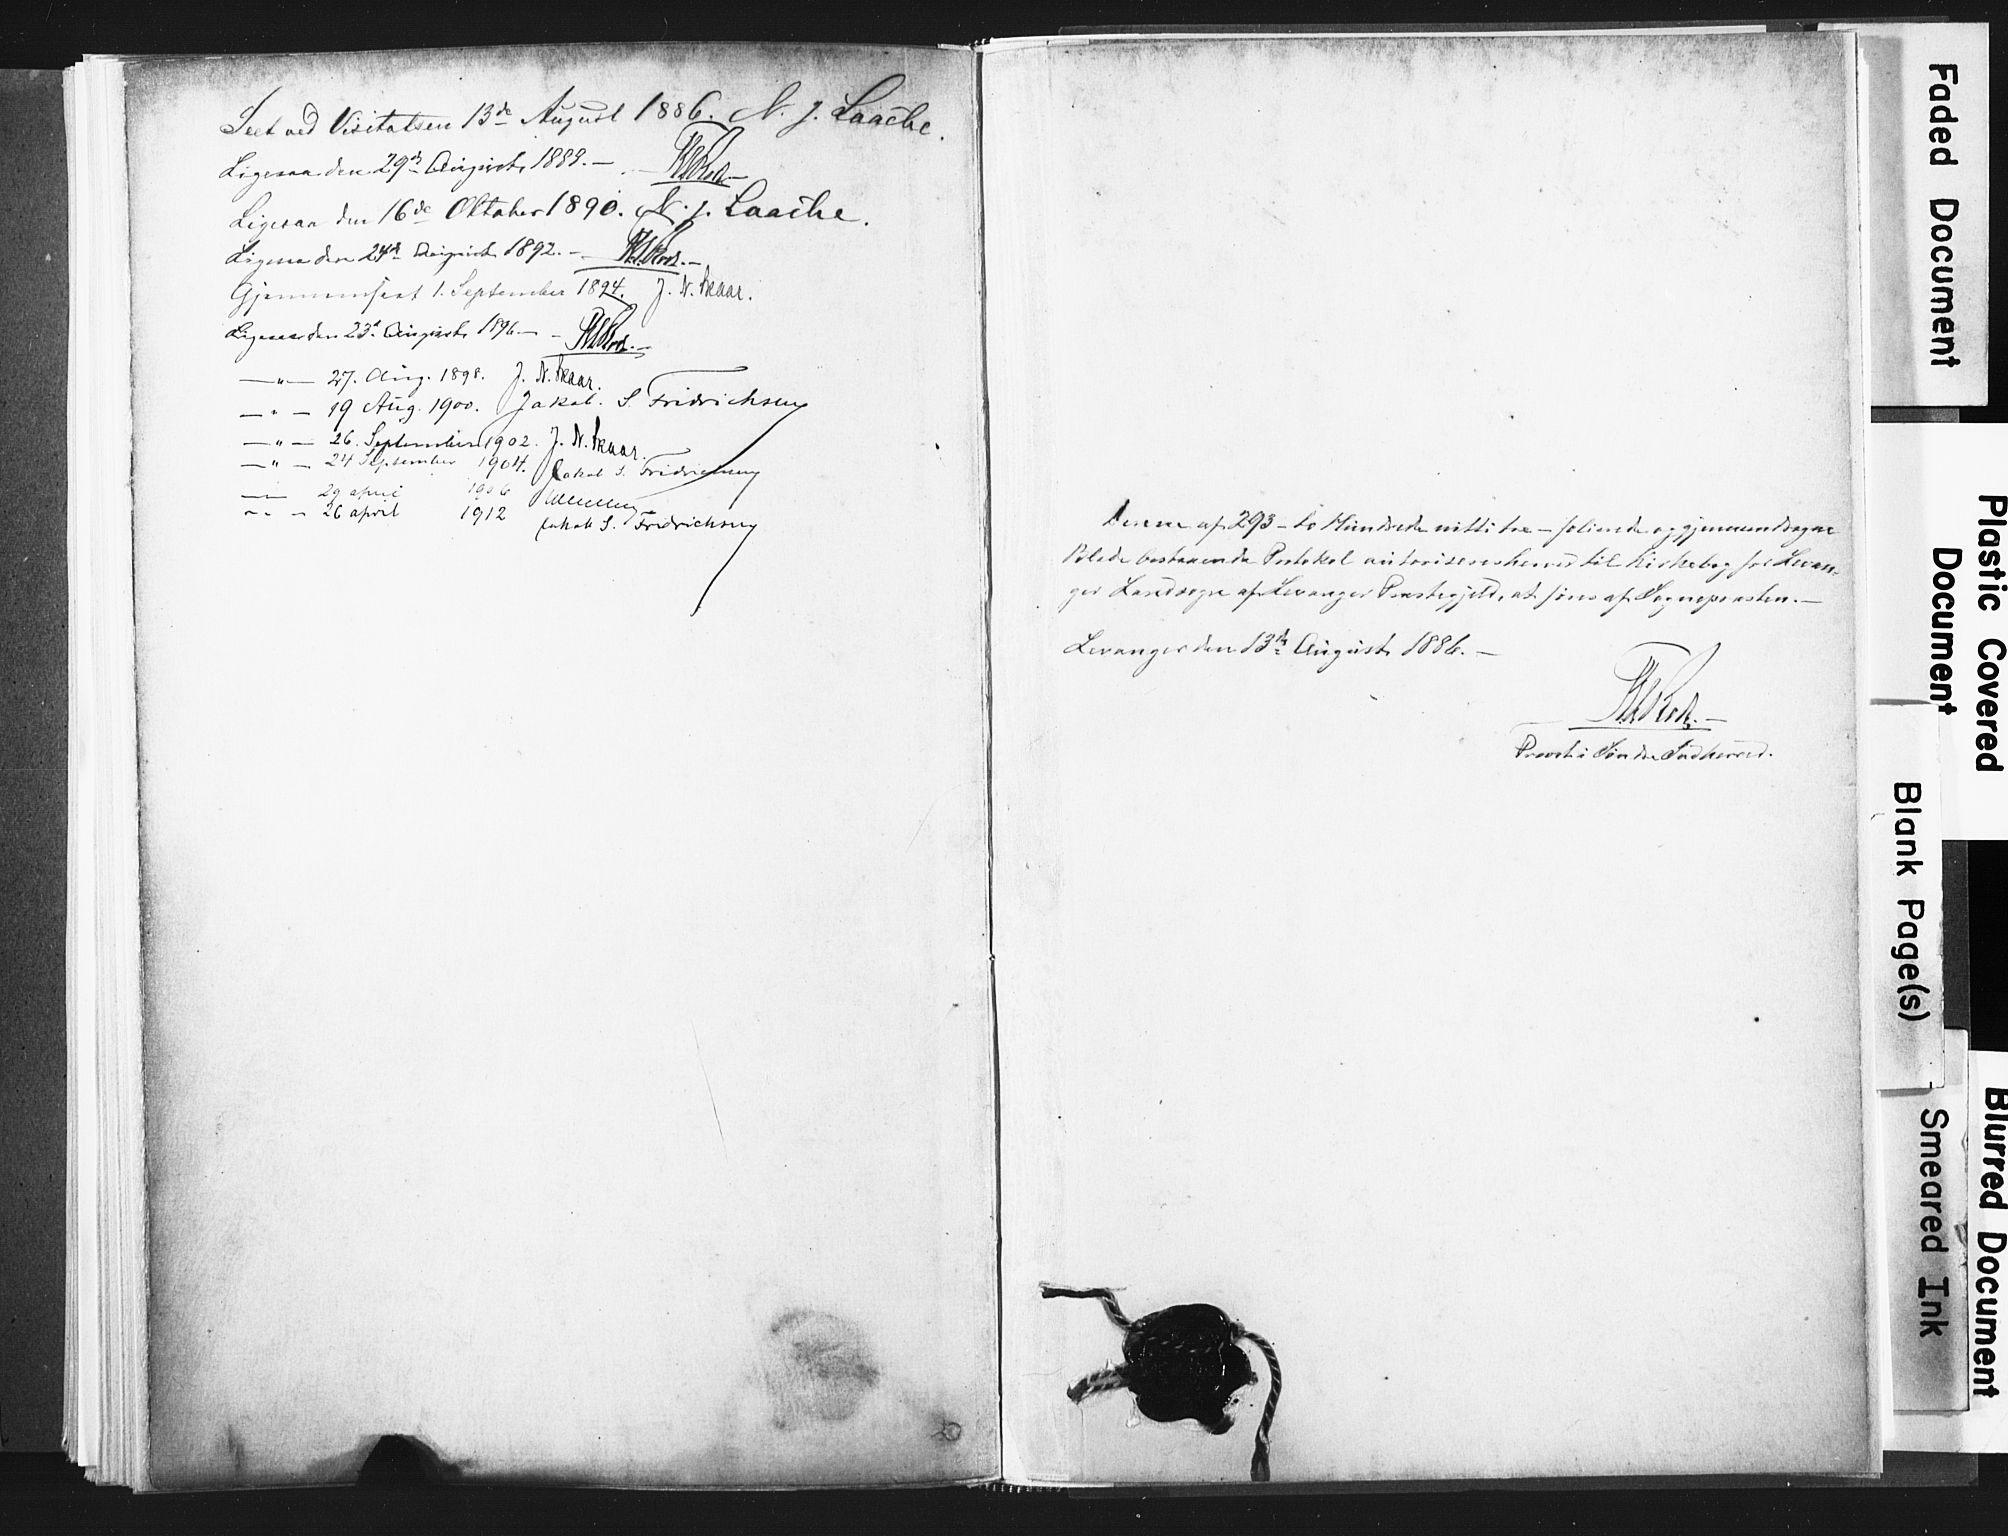 Seet ved Visitatsen 13de August 1886. N. J. Laache.
Ligesaa den 29de August 1888. —
Ligesaa den 16de Oktober 1890. N. J. Laache.
Ligesaa den 24de August 1892. —
Gjennemseet 1. September 1894. J. N. Skaar.
Ligesaa den 23de August 1896 —
— " — 27. Aug. 1898. J. N. Skaar.
— " — 19 Aug. 1900. Jakob. S. Fridrichsen
— " — 26. September 1902. J. N. Skaar.
— " — 24 September 1904. Jakob S. Fridrichsen
— " — 29 april 1906
— " — 26 april 1912 Jakob S. Fridrichsen
Denne af 293 – to Hundrede nitti tre – folierede og gjennemdragne
Blade bestaaende Protokol autoriseres herved til Kirkebog for Levan-
ger Landsogn af Levanger Præstegjeld, at føres af Sognepræsten. —
Levanger den 13de August 1886. —
Provst i Søndre Indherred.
Faded Document
Plastic Covered
Document
Blank Page(s)
Smeared Ink
Blurred Document